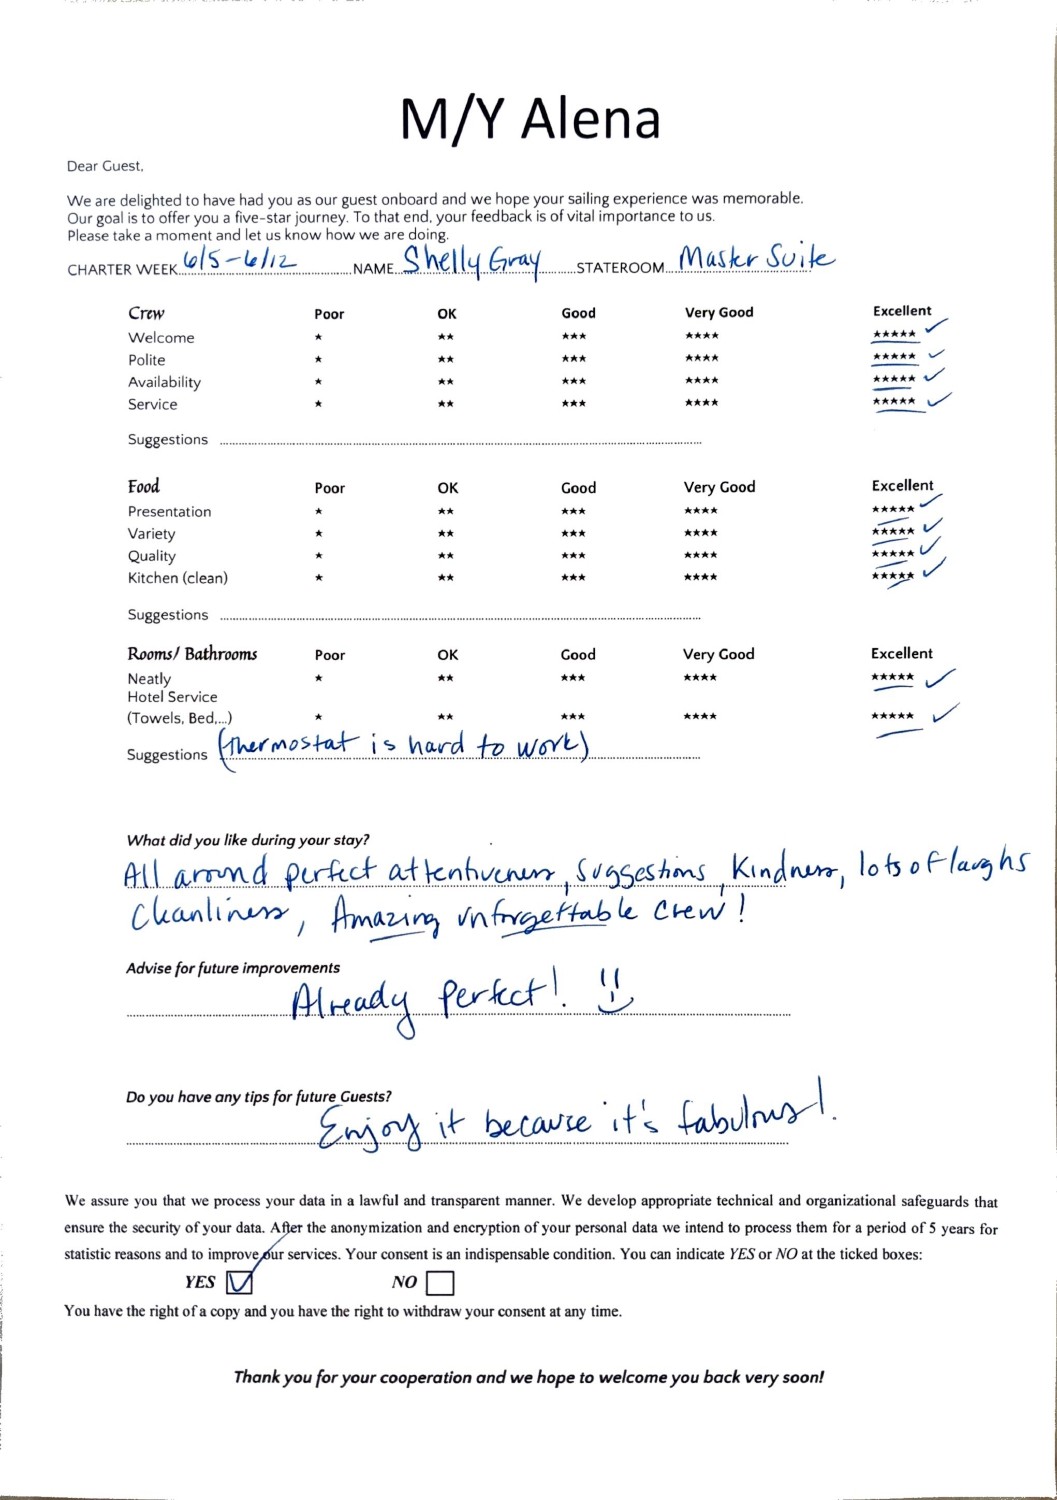 M/Y Alena
Dear Guest,
We are delighted to have had you as our guest onboard and we hope your sailing experience was memorable.
Our goal is to offer you a five-star journey. To that end, your feedback is of vital importance to us.
Please take a moment and let us know how we are doing.
CHARTER WEEK 6/5-6/12 NAME Shelly Gray STATEROOM Master Suite
Crew Poor OK Good Very Good Excellent
Welcome ★ ★★ ★★★ ★★★★ ★★★★★ ✓
Polite ★ ★★ ★★★ ★★★★ ★★★★★ ✓
Availability ★ ★★ ★★★ ★★★★ ★★★★★ ✓
Service ★ ★★ ★★★ ★★★★ ★★★★★ ✓
Suggestions
Food Poor OK Good Very Good Excellent
Presentation ★ ★★ ★★★ ★★★★ ★★★★★ ✓
Variety ★ ★★ ★★★ ★★★★ ★★★★★ ✓
Quality ★ ★★ ★★★ ★★★★ ★★★★★ ✓
Kitchen (clean) ★ ★★ ★★★ ★★★★ ★★★★★ ✓
Suggestions
Rooms/ Bathrooms Poor OK Good Very Good Excellent
Neatly ★ ★★ ★★★ ★★★★ ★★★★★ ✓
Hotel Service
(Towels, Bed,...) ★ ★★ ★★★ ★★★★ ★★★★★ ✓
Suggestions (Thermostat is hard to work)
What did you like during your stay?
All around perfect attentiveness, suggestions, Kindness, lots of laughs
Cleanliness, Amazing unforgettable crew!
Advise for future improvements
Already perfect!
Do you have any tips for future Guests?
Enjoy it because it's fabulous!
We assure you that we process your data in a lawful and transparent manner. We develop appropriate technical and organizational safeguards that
ensure the security of your data. After the anonymization and encryption of your personal data we intend to process them for a period of 5 years for
statistic reasons and to improve our services. Your consent is an indispensable condition. You can indicate YES or NO at the ticked boxes:
YES ☑ NO ☐
You have the right of a copy and you have the right to withdraw your consent at any time.
Thank you for your cooperation and we hope to welcome you back very soon!